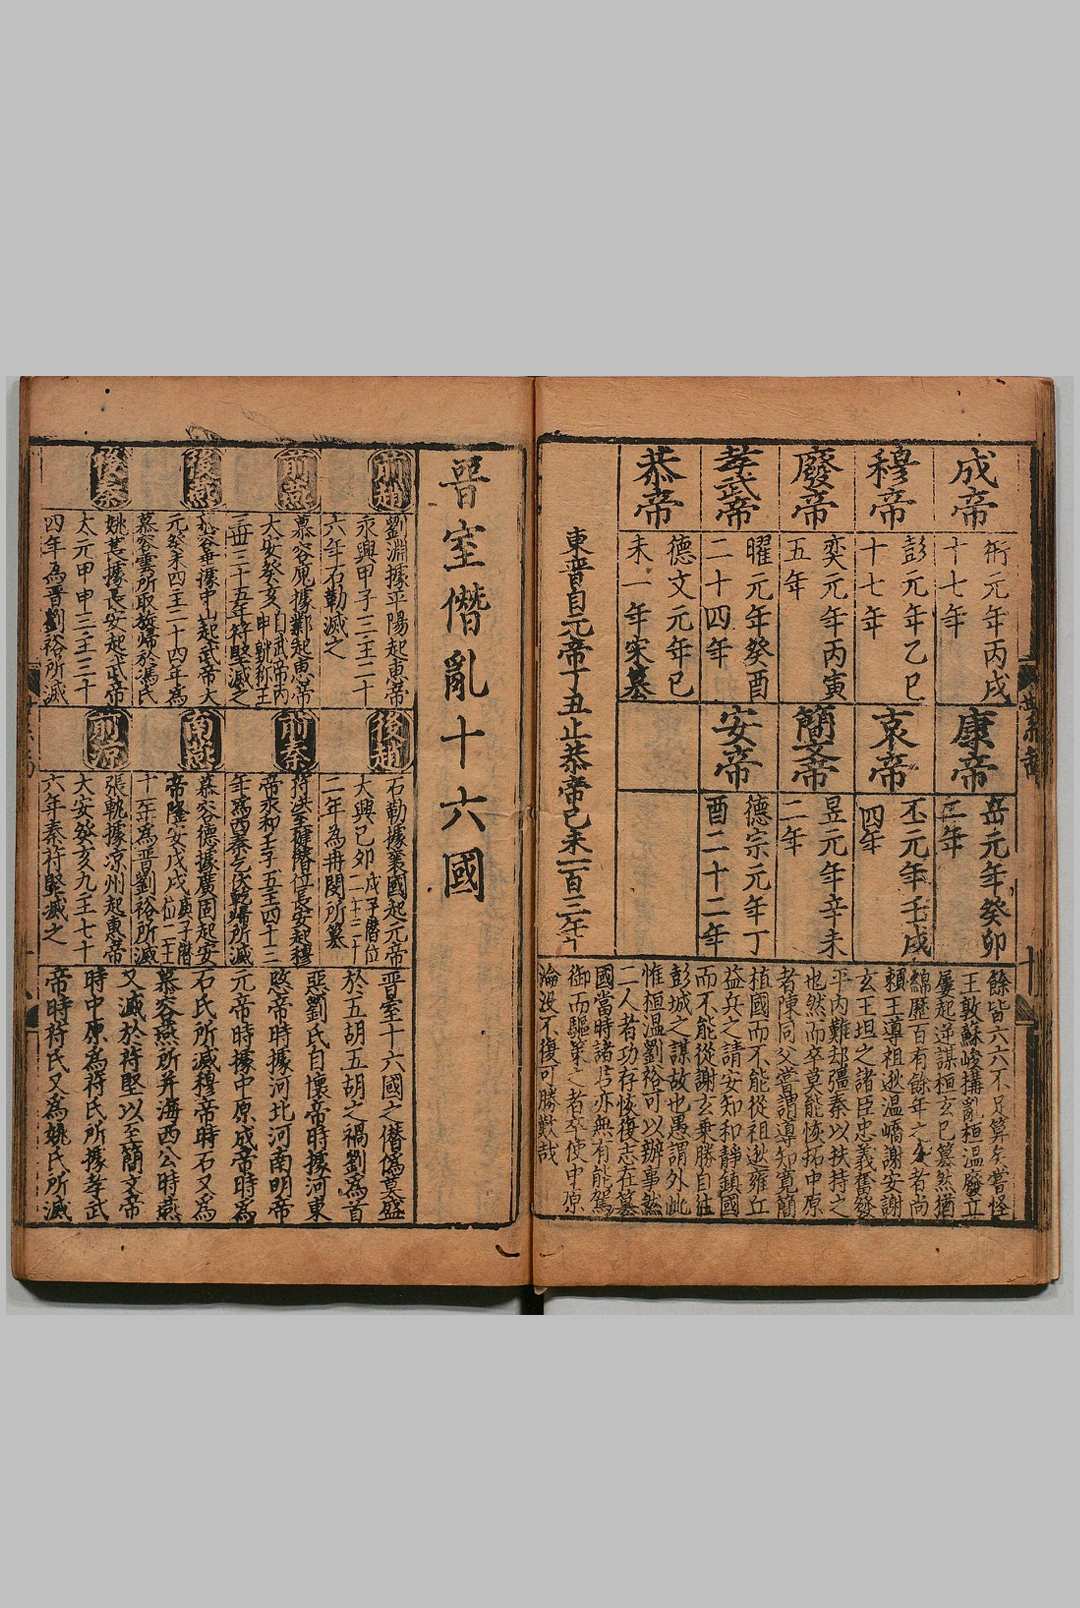 成帝
衍元年丙戌
十七年
康帝
岳元年癸卯
二年
穆帝
彭元年乙巳
十七年
哀帝
丕元年壬戌
四年
廢帝
奕元年丙寅
五年
簡文帝
昱元年辛未
二年
孝武帝
曜元年癸酉
二十四年
安帝
德宗元年丁
酉二十二年
恭帝
德文元年己
未一年宋篡
東晉自元帝丁丑止恭帝己未一百三年
餘皆六六不足算矣嘗怪
王敦蘇峻搆亂桓溫廢立
屢起逆謀桓玄已篡然猶
綿歷百有餘年之久者尚
賴王導祖逖溫嶠謝安謝
玄王坦之諸臣忠義奮發
平內難却彊秦以扶持之
也然而卒莫能恢拓中原
者陳同父嘗謂導知寬簡
植國而不能從祖逖雍丘
益兵之請安知和靜鎮國
而不能從謝玄乗勝自往
彭城之謀故也愚謂外此
惟桓溫劉裕可以辦事然
二人者功存恢復志在篡
國當時諸君亦無有能駕
御而驅策之者卒使中原
淪没不復可勝歎哉
晉室僭亂十六國
前趙
劉淵據平陽起惠帝
永興甲子三主二十
六年石勒滅之
前燕
慕容廆據鄴起惠帝
大安癸亥自武帝丙申號称王
三世三十五年符堅滅之
後燕
慕容垂據中山起武帝大
元癸未四主二十四年為
慕容雲所取旋歸於馮氏
後秦
姚萇據長安起武帝
太元甲申三主三十
四年為晉劉裕所滅
後趙
石勒據襄國起元帝
大興己卯戊子僭位二十三十
二年為冉閔所篡
前秦
符洪至健僭位長安起穆
帝永和壬子五主四十三
年為西秦乞伏乾歸所滅
南燕
慕容德據廣固起安
帝隆安戊戌庚子僭位二主
十一年為晉劉裕所滅
前凉
張軌據凉州起惠帝
大安癸亥九主七十
六年秦符堅滅之
晉室十六國之僭僞莫盛
於五胡五胡之禍劉為首
惡劉氏自懷帝時據河東
愍帝時據河北河南明帝
元帝時據中原成帝時為
石氏所滅穆帝時石又為
慕容燕所并海西公時燕
又滅於符堅以至簡文帝
時中原為符氏所據孝武
帝時符氏又為姚氏所滅